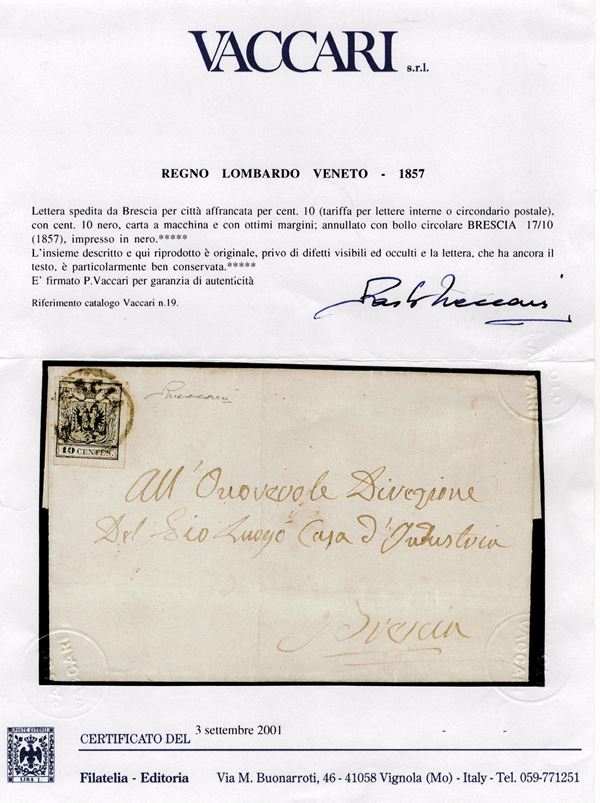 VACCARI s.r.l.
REGNO LOMBARDO VENETO - 1857
Lettera spedita da Brescia per città affrancata per cent. 10 (tariffa per lettere interne o circondario postale),
con cent. 10 nero, carta a macchina e con ottimi margini; annullato con bollo circolare BRESCIA 17/10
(1857), impresso in nero.*****
L'insieme descritto e qui riprodotto è originale, privo di difetti visibili ed occulti e la lettera, che ha ancora il
testo, è particolarmente ben conservata.*****
E' firmato P.Vaccari per garanzia di autenticità
Riferimento catalogo Vaccari n.19.
Paolo Vaccari
VACCARI
PVaccari
10 CENTES.
All' Onorevole Direzione
Del Pio Luogo Casa d'Industria
Brescia
VACCARI
VACCARI
POSTE ESTENSI
LIRA 1.
CERTIFICATO DEL 3 settembre 2001 - -
Filatelia - Editoria Via M. Buonarroti, 46 - 41058 Vignola (Mo) - Italy - Tel. 059-771251